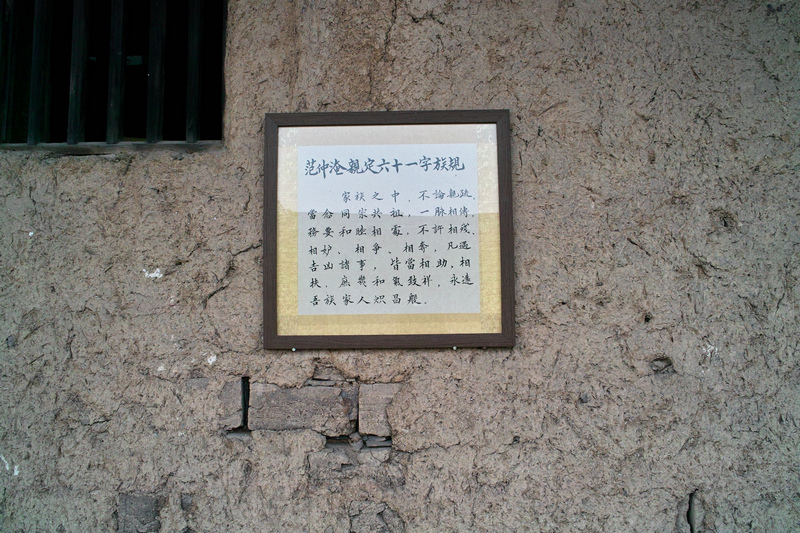 范仲淹親定六十一字族規
家族之中，不論親疏，
當念同宗共祖，一脈相傳，
務要和睦相處，不許相殘、
相妒、相爭、相奪，凡遇
吉凶諸事，皆當相助、相
扶，庶幾和氣致祥，永遠
吾族家人熾昌般。